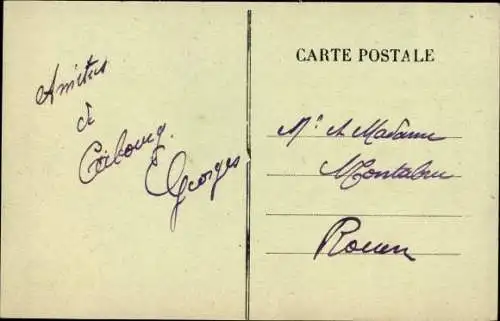 Amitiés
de
Cabourg.
Georges
CARTE POSTALE
Mr et Madame
Montabru
Rouen